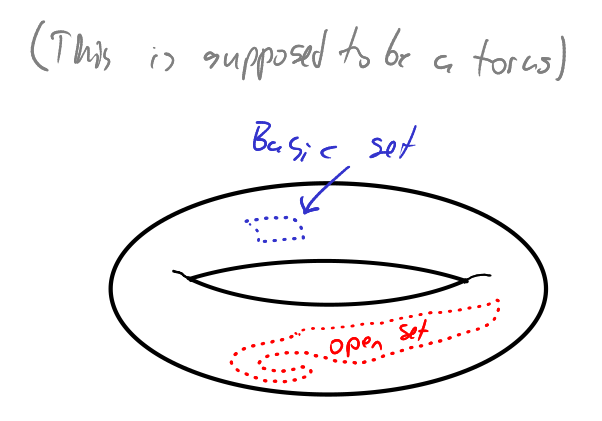 (This is supposed to be a torus)
Basic set
open set